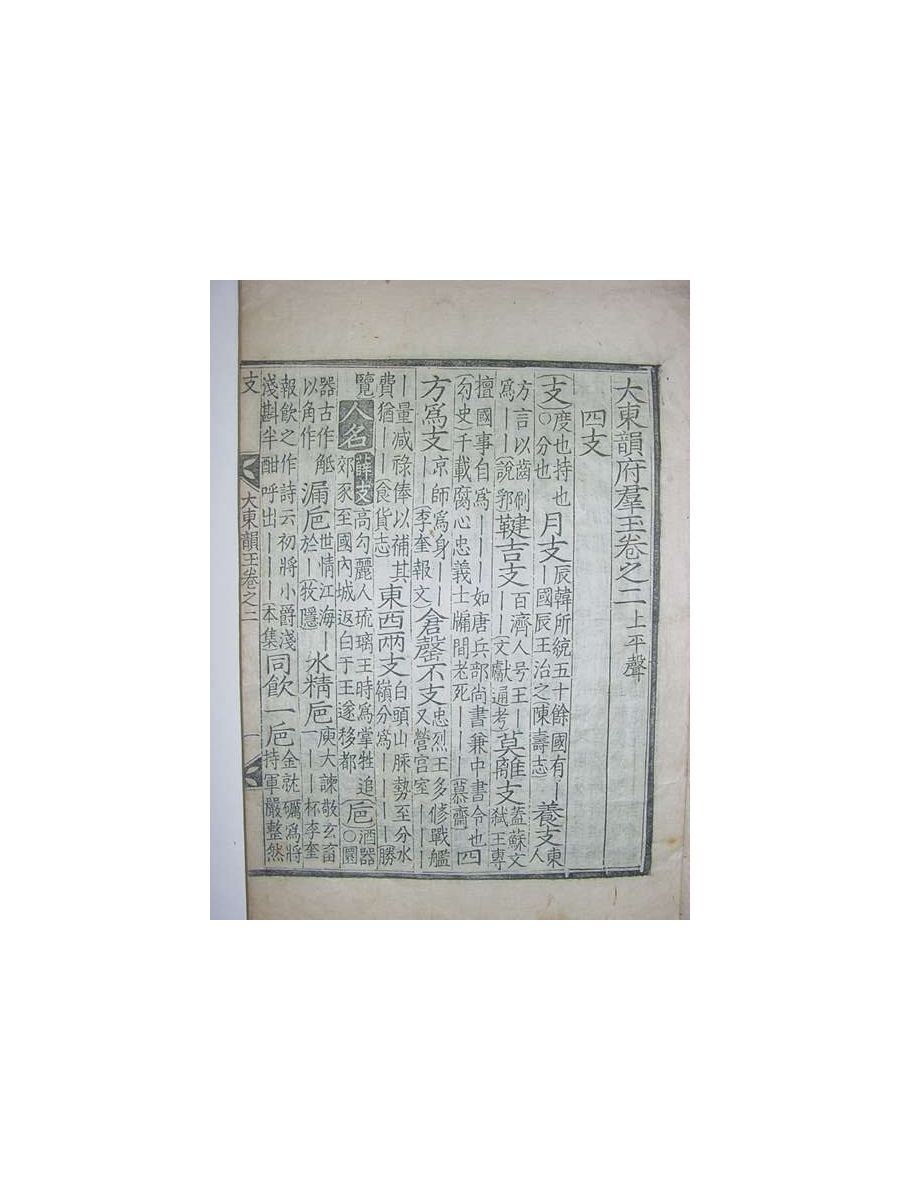 大東韻府羣玉卷之二 上平聲
四支
支度也持也○分也 月支辰韓所統五十餘國有丨丨國辰王治之陳壽志 養支東人
方言以齒刷爲丨丨說郛 鞬吉支百濟人号王丨丨丨文獻通考 莫離支蓋蘇文弑王專
擅國事自爲丨丨丨如唐兵部尚書兼中書令也勾史千載腐心忠義士牖間老死丨丨丨慕齋 四
方爲支京師爲身丨丨丨丨李奎報文 倉罄不支忠烈王多修戰艦又營宮室丨丨
丨量减祿俸以補其費猶丨丨食貨志 東西兩支白頭山脉勢至分水嶺分爲丨丨丨丨勝
覽 人名 薛支高勾麗人琉璃王時爲掌牲追郊豕至國內城返白于王遂移都 巵酒器○圜
器古作觝以角作 漏巵世情江海丨於丨牧隱 水精巵庾大諫敬玄畜一丨丨丨杯李奎
報飮之作詩云初將小爵淺淺斟半酣呼出丨丨丨丨本集 同飮一巵金就礪爲將持軍嚴整然
支 大東韻玉卷之二 一